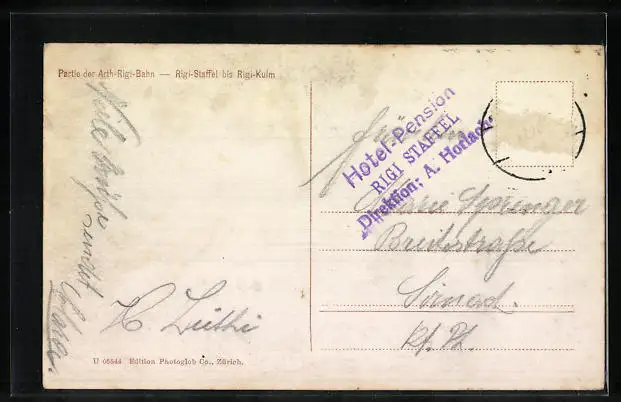 Partie der Arth-Rigi-Bahn — Rigi-Staffel bis Rigi-Kulm
Viele Grüße sendet
H. Lüthi
U 05544 Edition Photoglob Co., Zürich.
Hotel-Pension
RIGI STAFFEL
Direktion; A. Horlach
Marie Sprenger
Breitestraße
Sirnach
Kt. Th.